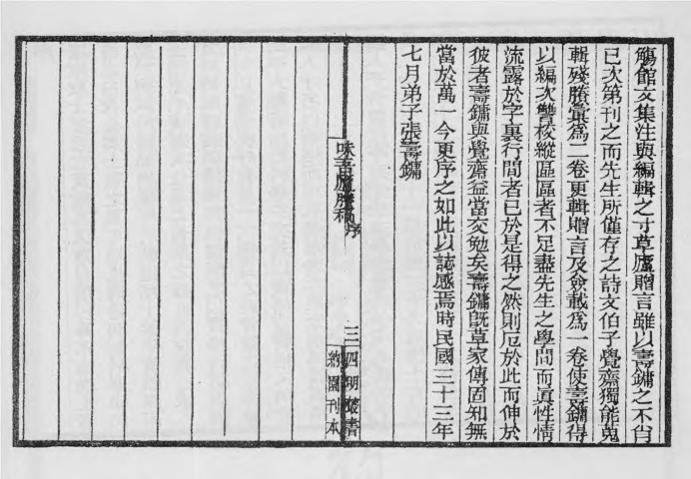 觴館文集注與編輯之寸草廬贈言雖以壽鏞之不肖
已次第刊之而先生所僅存之詩文伯子覺齋獨能蒐
輯殘賸彙為二卷更輯贈言及僉載為一卷使壽鏞得
以編次讐校縱區區者不足盡先生之學問而真性情
流露於字裏行間者已於是得之然則厄於此而伸於
彼者壽鏞與覺齋益當交勉矣壽鏞既草家傳固知無
當於萬一今更序之如此以誌感焉時民國三十三年
七月弟子張壽鏞
味吾廬賸稿序
三
四明叢書
約園刊本